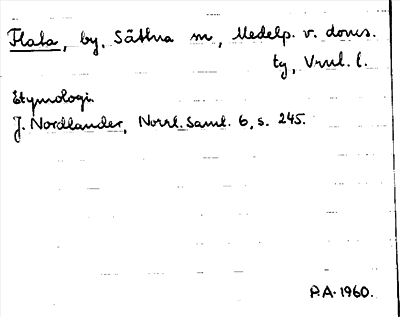 Flata, by, Sättna sn, Medelp. v. doms.
ty, Vrul. l.
Etymologi.
J. Nordlander, Norrl. Saml. 6, s. 245.
P.A. 1960.